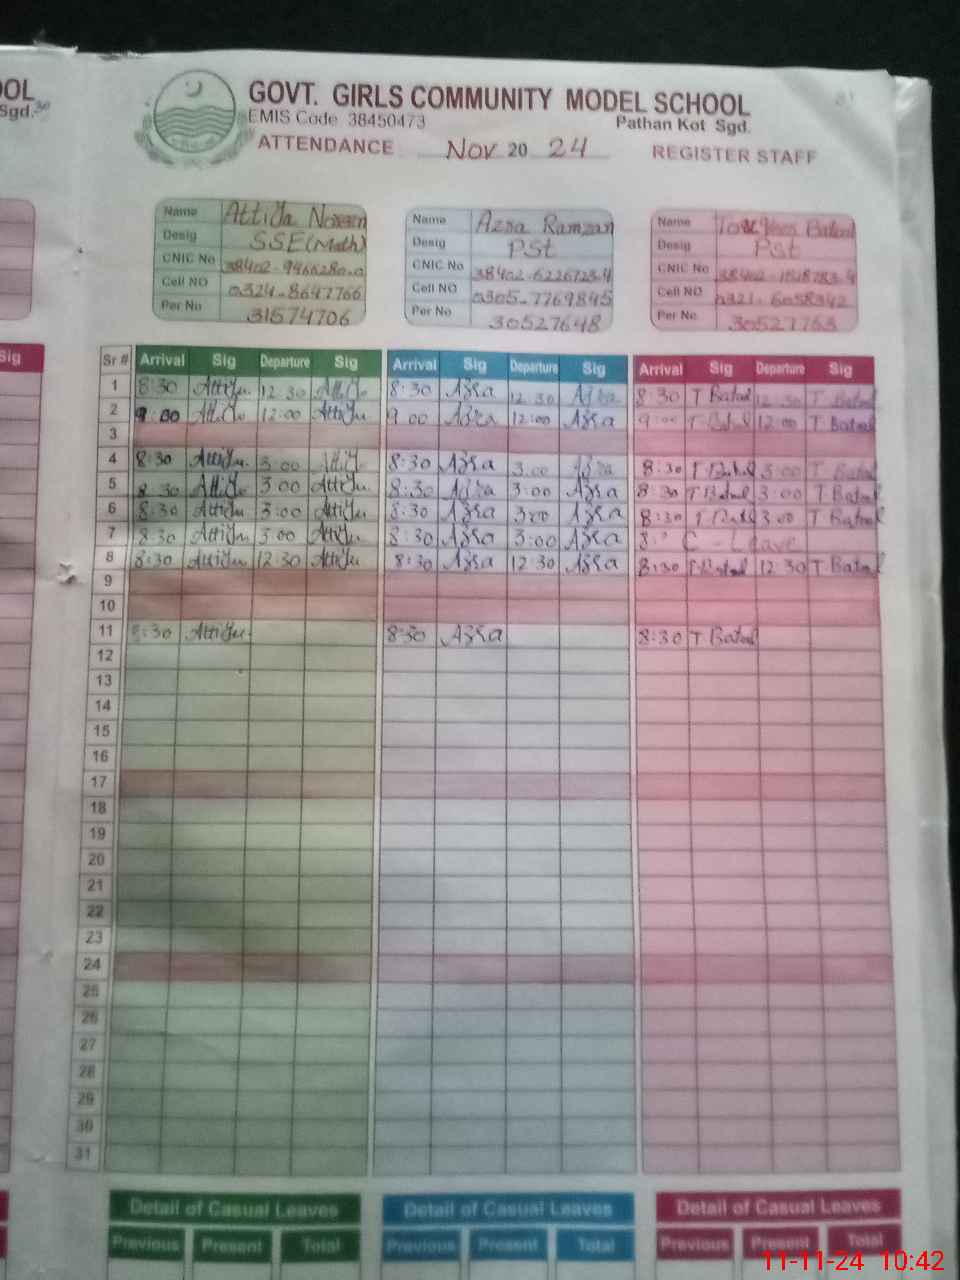 OOL
Sgd.
GOVT. GIRLS COMMUNITY MODEL SCHOOL
EMIS Code 38450473 Pathan Kot Sgd.
ATTENDANCE Nov 20 24 REGISTER STAFF
Name Attiya Name Azra Ramzan Name Batool
Desig SSE(Math) Desig PSt Desig PSt
CNIC No CNIC No 38402-6226723-4 CNIC No
Cell NO 0324-8647766 Cell NO 0305-7769845 Cell NO 0321-6058342
Per No 31574706 Per No 30527648 Per No 30527763
Sig
Sr # Arrival Sig Departure Sig Arrival Sig Departure Sig Arrival Sig Departure Sig
1 8:30 12:30 8:30 Azra 12 30 Azra 8:30 T Batool 12:30 T Batool
2 9:00 12:00 9 00 Azra 12:00 Azra 9:00 T Batool 12:00 T Batool
3
4 8:30 3:00 8:30 Azra 3:00 Azra 8:30 T Batool 3:00 T Batool
5 8:30 3:00 8:30 Azra 3:00 Azra 8:30 T Batool 3:00 T Batool
6 8:30 3:00 8:30 Azra 3:00 Azra 8:30 T Batool 3:00 T Batool
7 8:30 3:00 8:30 Azra 3:00 Azra C - Leave
8 8:30 12:30 8:30 Azra 12 30 Azra 8:30 T Batool 12 30 T Batool
9
10
11 8:30 8:30 Azra 8:30 T Batool
12
13
14
15
16
17
18
19
20
21
22
23
24
25
26
27
28
29
30
31
Detail of Casual Leaves Detail of Casual Leaves Detail of Casual Leaves
Previous Present Total Previous Present Total Previous Present Total
11-11-24 10:42